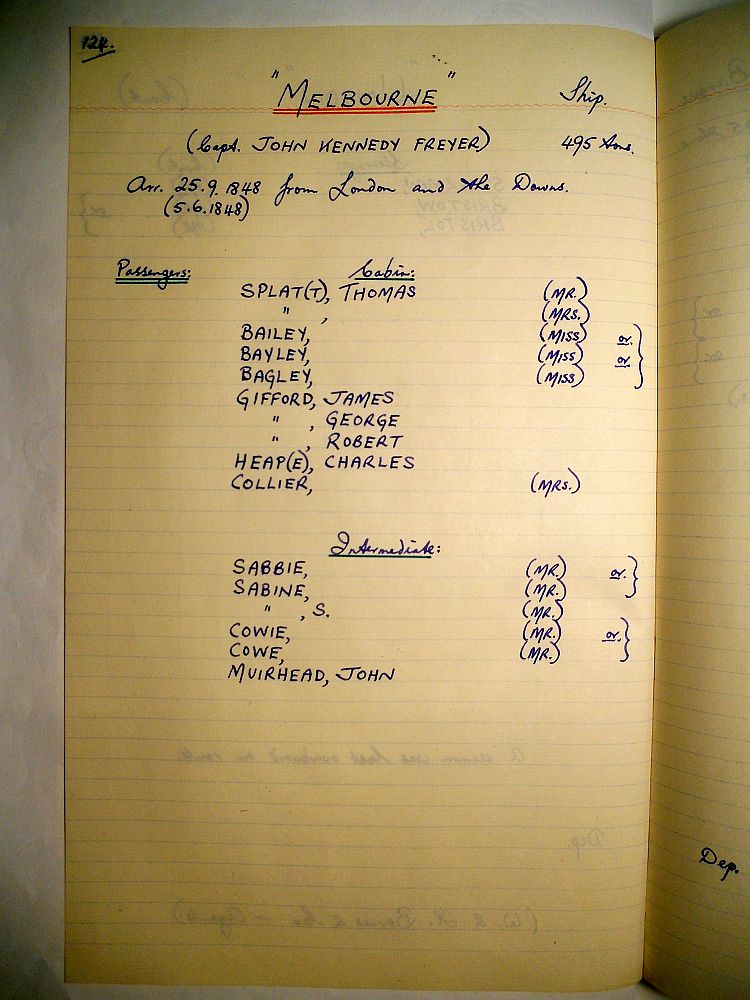 124.
"MELBOURNE" Ship.
(Capt. JOHN KENNEDY FREYER) 495 tons.
Arr. 25.9.1848 from London and the Downs.
(5.6.1848)
Passengers: Cabin:
SPLAT(T), THOMAS (MR.)
" , (MRS.)
BAILEY, (MISS) or.
BAYLEY, (MISS) or
BAGLEY, (MISS)
GIFFORD, JAMES
" , GEORGE
" , ROBERT
HEAP(E), CHARLES
COLLIER, (MRS.)
Intermediate:
SABBIE, (MR.) or.
SABINE, (MR.)
" , S. (MR.)
COWIE, (MR.) or.
COWE, (MR.)
MUIRHEAD, JOHN
Dep.